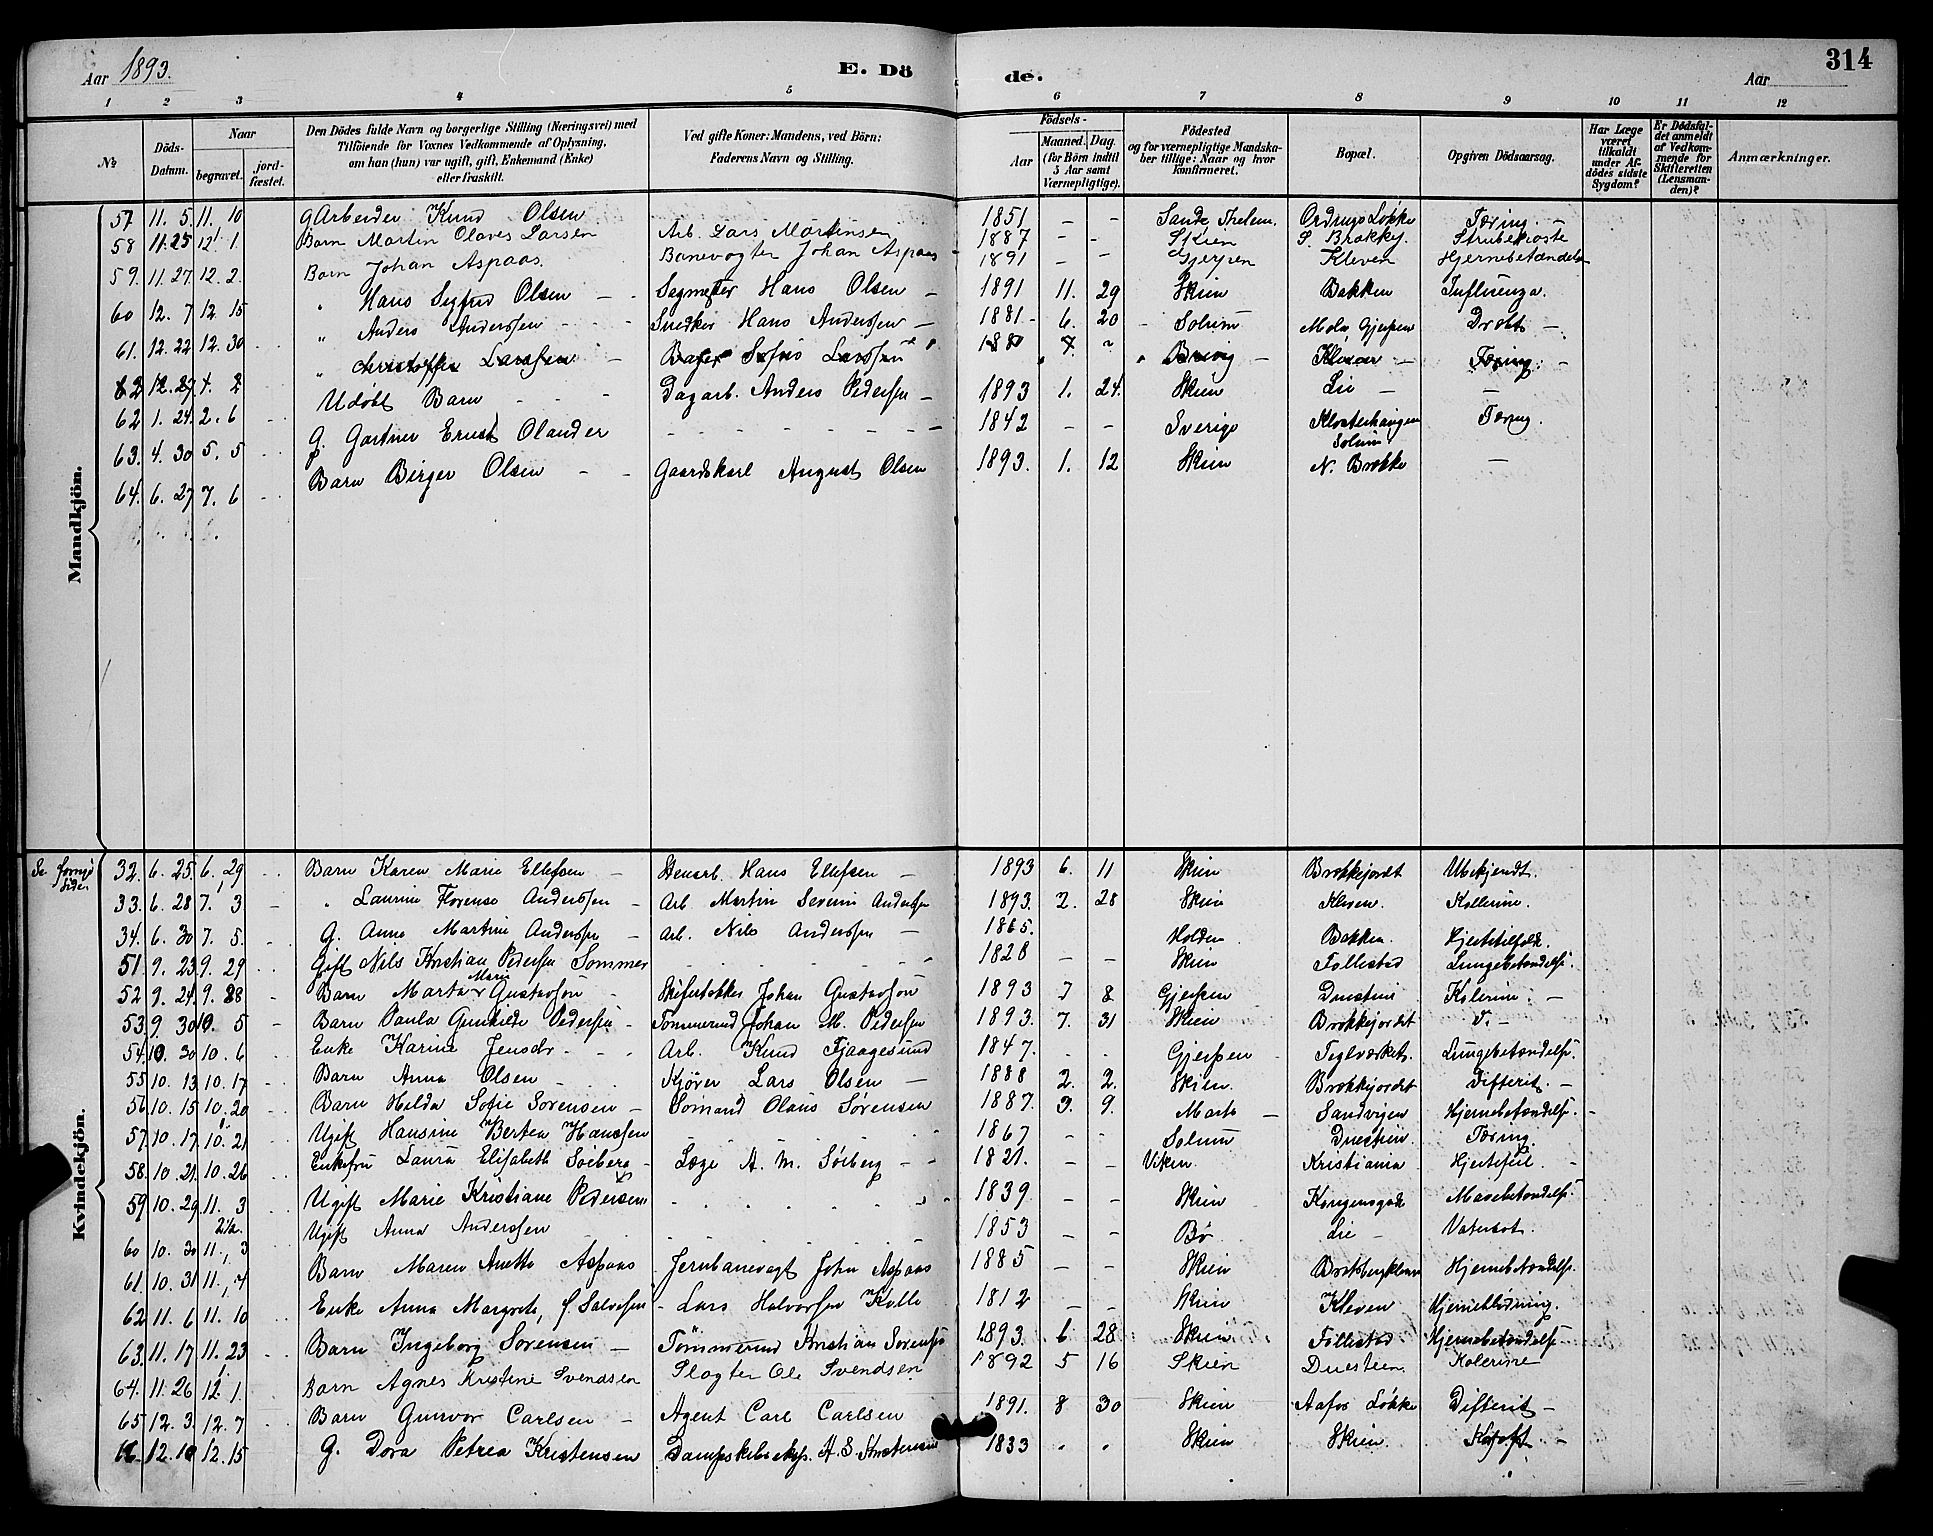 Aar 1893.
E. Dö
de.
Aar
314
1 2 3 4 5 6 7 8 9 10 11 12
№
Döds-Datum.
Naar
begravet.
jord-fæstet.
Den Dödes fulde Navn og borgerlige Stilling (Næringsvei) med Tilföiende for Voxnes Vedkommende af Oplysning, om han (hun) var ugift, gift, Enkemand (Enke) eller fraskilt.
Ved gifte Koner: Mandens, ved Börn: Faderens Navn og Stilling.
Födsels-
Aar
Maaned. Dag. (for Börn indtil 5 Aar samt Værnepligtige).
Födested og for værnepligtige Mandskaber tillige: Naar og hvor konfirmeret.
Bopæl.
Opgiven Dödsaarsag.
Har Læge været tilkaldt under Afdödes sidste Sygdom?
Er Dödsfaldet anmeldt af Vedkommende for Skifteretten (Lensmanden)?
Anmærkninger.
Mandkjön.
57 11. 5. 11. 10 g Arbeider Knud Olsen 1851 – – Sande, Thelem. Ordrups Løkke Tæring. –
58 11. 25 12. 1. Barn Martin Olaves Larsen Arb. Lars Martinsen 1887 – – Skien S. Brekkej. Strubehoste
59. 11. 27 12. 2. Barn Johan Aspaas. Banevogter Johan Aspaas 1891 – – Gjerpen Kleven Hjernebetændelse
60 12. 7 12 15 " Hans Sigfrid Olsen – Sagmester Hans Olsen – 1891 11. 29 Skien Bakken Influenza.
61. 12. 22 12. 30 " Anders Anderssen Snedker Hans Anderssen – 1881 6. 20 Solum Mela Gjerpen
62 12. 27 4. 2 " Larssen – Larssen 1880 Brevig – – Tæring. –
62 1. 24. 2. 6 Udøbt Barn Dagarb. Anders Pedersen – 1893 1. 24. Skien Lie – –
63. 4. 30 5. 5 G. Gartner Ernst Olander 1842 – – Sverige Klosterhaugen Solum Tæring.
64. 6. 27 7. 6 Barn Birger Olsen – Gaardskarl August Olsen 1893. 1. 12 Skien N. Brekke –
Kvindekjön.
Se forrige Side
32. 6. 25. 6. 29 Barn Karen Marie Ellefsen – Stenarb. Hans Ellefsen – 1893 6. 11 Skien Brekkejordet Ubekjendt.
33. 6. 28 7. 3 – " Laurine Florense Anderssen – Arb. Martin Severin Anderssen 1893. 2. 28 Skien Kleven. Kollerine.
34. 6. 30 7. 5. G. Anne Martine Anderssen – Arb. Nils Anderssen – 1865. Holden Bakken.
51. 9. 23 9. 29 Gift Nils Kristian Pedersen Sommer 1828 – – Skien Follestad Lungebetændelse.
52 9. 24 9. 28 Barn Marta Marie Gustavson Skifertækker Johan Gustavson 1893 7 8 Gjerpen Duesteen Kolerine. –
53. 9. 30 10. 5 – Barn Paula Gunhilde Pedersen – Tømmermd Johan M. Pedersen 1893. 7. 31 Skien Brekkejordet D. –
54. 10. 30 10. 6 Enke Karine Jensdr. Arb. Knud Fjaagesund 1847. Gjerpen Teglverket. Lungebetændelse.
55 10. 13 10. 17 Barn Anna Olsen – Kjører Lars Olsen – 1888 2. 2. Skien. Brekkejordet Difterit. –
56 10. 15 10. 20 Barn Helda Sofie Sørensen – Sømand Olaus Sørensen 1887. 3. 9. – Sandvigen Hjernebetændelse.
57. 10. 17 10. 21 Ugift Hansine Berten Hanssen 1867 – – Solum Duesteen. Tæring
58. 10. 21 10. 26 Enkefru Laura Elisabeth Søiberg – Læge H. M. Søiberg – – 1821. – – Viken. Kristiania Hjertefeil. –
59 10. 29 11. 3 Ugift Marie Kristiane Pedersen 1839 – – Skien Kongensgade Mavebetændelse.
60 10. 30 11. 3 Ugift Anna Anderssen 1853 – – Bø Lie – Vatersot.
61. 10. 31 11. 4 Barn Maren Anette Aspaas Jernbanevagt John Aspaas 1885 – – Skien Bratsbergkleven Hjernebetændelse.
62 11. 6 11. 10 Enke Anna Margrete, f. Salvesen – Lars Halvorsen Kolle 1812 – – Skien Kleven Hjerneblødning.
63. 11. 17 11. 23 Barn Ingeborg Sørensen – Tømmermd Kristian Sørensen 1893. 6 28 Skien. Follestad Hjernebetændelse
64. 11. 26 12. 1. Barn Agnes Kristine Svendsen Slagter Ole Svendsen 1892 5 16 Skien Duesteen Kolerine
65 12. 3. 12. 7 Barn Gunvor Carlsen – Agent Carl Carlsen 1891. 8 30 Skien Aafos Løkke Difterit –
66. 12. 10 12. 15 G. Dora Petrea Kristensen Dampskibseksp. H. S. Kristensen 1833 Skien Skien. Kræft –